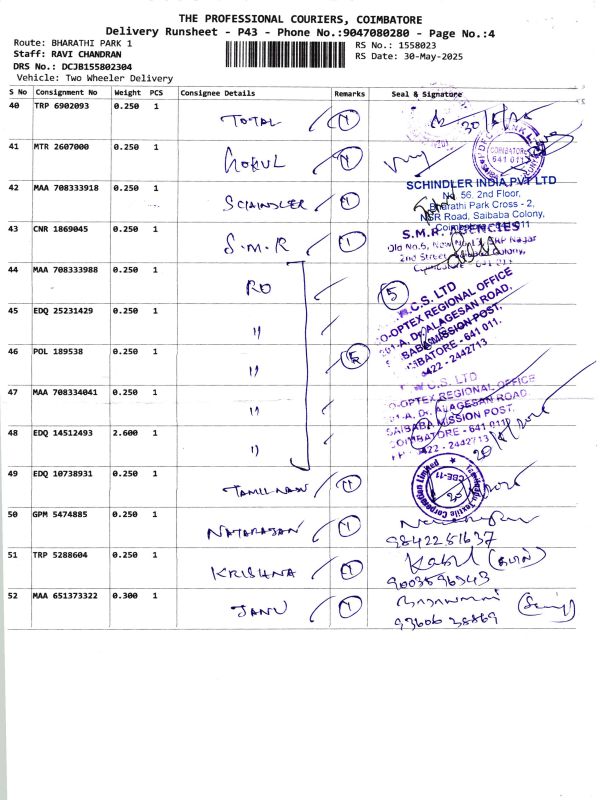 THE PROFESSIONAL COURIERS, COIMBATORE
Delivery Runsheet - P43 - Phone No.:9047080280 - Page No.:4
Route: BHARATHI PARK 1
Staff: RAVI CHANDRAN
DRS No.: DCJB155802304
Vehicle: Two Wheeler Delivery
RS No.: 1558023
RS Date: 30-May-2025
S No Consignment No Weight PCS Consignee Details Remarks Seal & Signature
40 TRP 6902093 0.250 1 TOTAL 1
41 MTR 2607000 0.250 1 GOKUL 1
COIMBATORE
641 011
42 MAA 708333918 0.250 1 SCHINDLER 1
SCHINDLER INDIA PVT LTD
No. 56, 2nd Floor,
Bharathi Park Cross - 2,
NSR Road, Saibaba Colony,
43 CNR 1869045 0.250 1 S.M.R 1
S.M.R. AGENCIES
44 MAA 708333988 0.250 1 RO 5
C.S. LTD
CO-OPTEX REGIONAL OFFICE
45 EDQ 25231429 0.250 1 "
SAIBABA MISSION POST,
COIMBATORE - 641 011.
0422 - 2442713
46 POL 189538 0.250 1 " 5
47 MAA 708334041 0.250 1 "
C.S. LTD
CO-OPTEX REGIONAL OFFICE
SAIBABA MISSION POST,
48 EDQ 14512493 2.600 1 "
COIMBATORE - 641 011
0422 - 2442713
49 EDQ 10738931 0.250 1 TAMILNADU 1
CBE-11
50 GPM 5474885 0.250 1 NATARAJAN 1
9842281637
51 TRP 5288604 0.250 1 KRISHNA 1
52 MAA 651373322 0.300 1 JANU 1